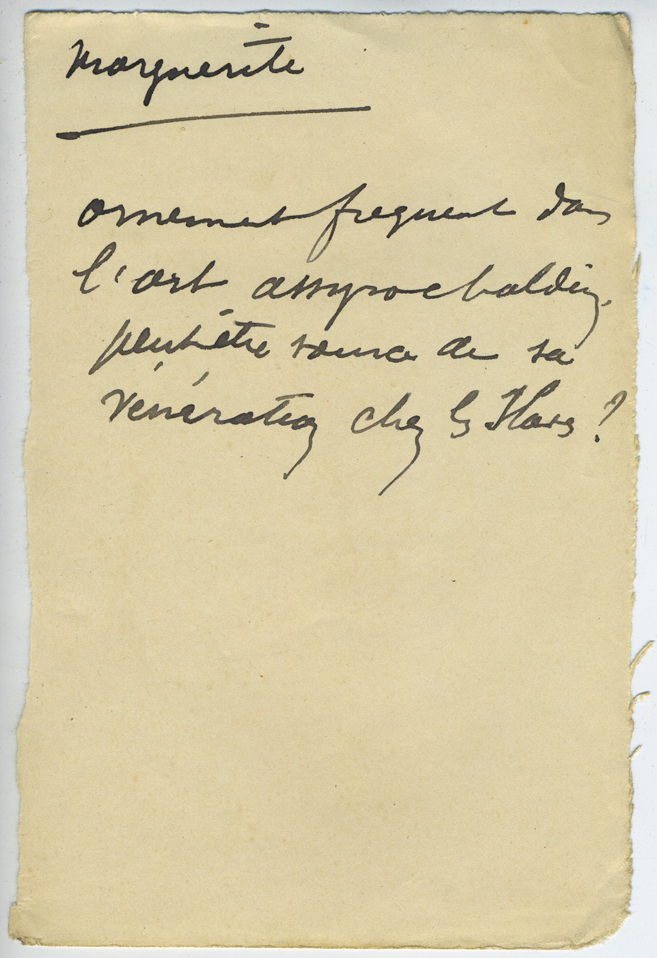 Marguerite
ornement frequent dans
l'art assyrochaldéen
peut être source de sa
vénération chez les ?